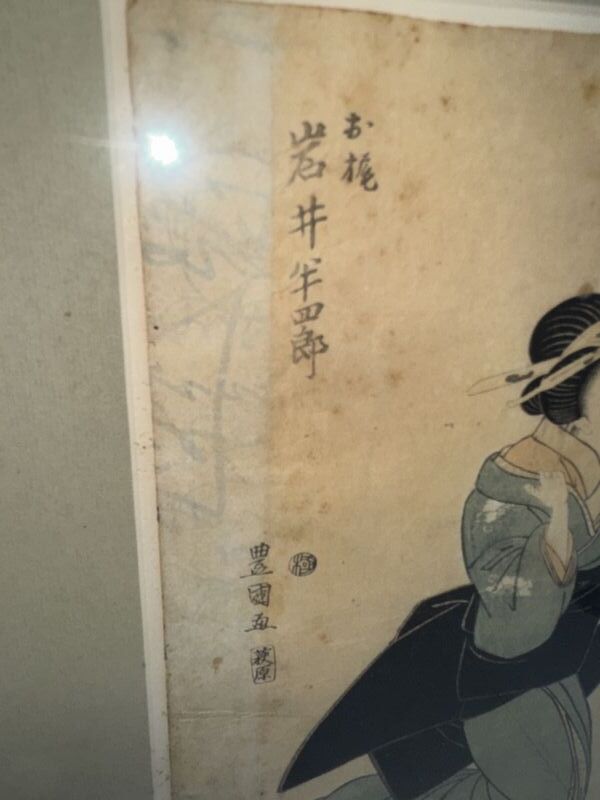 お梶
岩井半四郎
極
豊國画
萩原